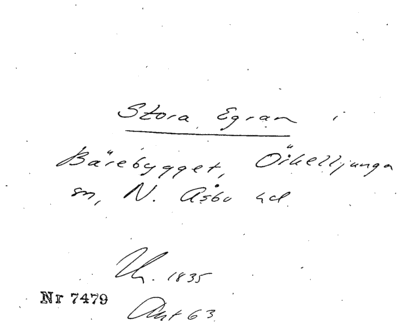 Stora Egran i
Bärebygget, Örkelljunga
sn, N. Åsbo hd
1835
Nr 7479
Akt 63